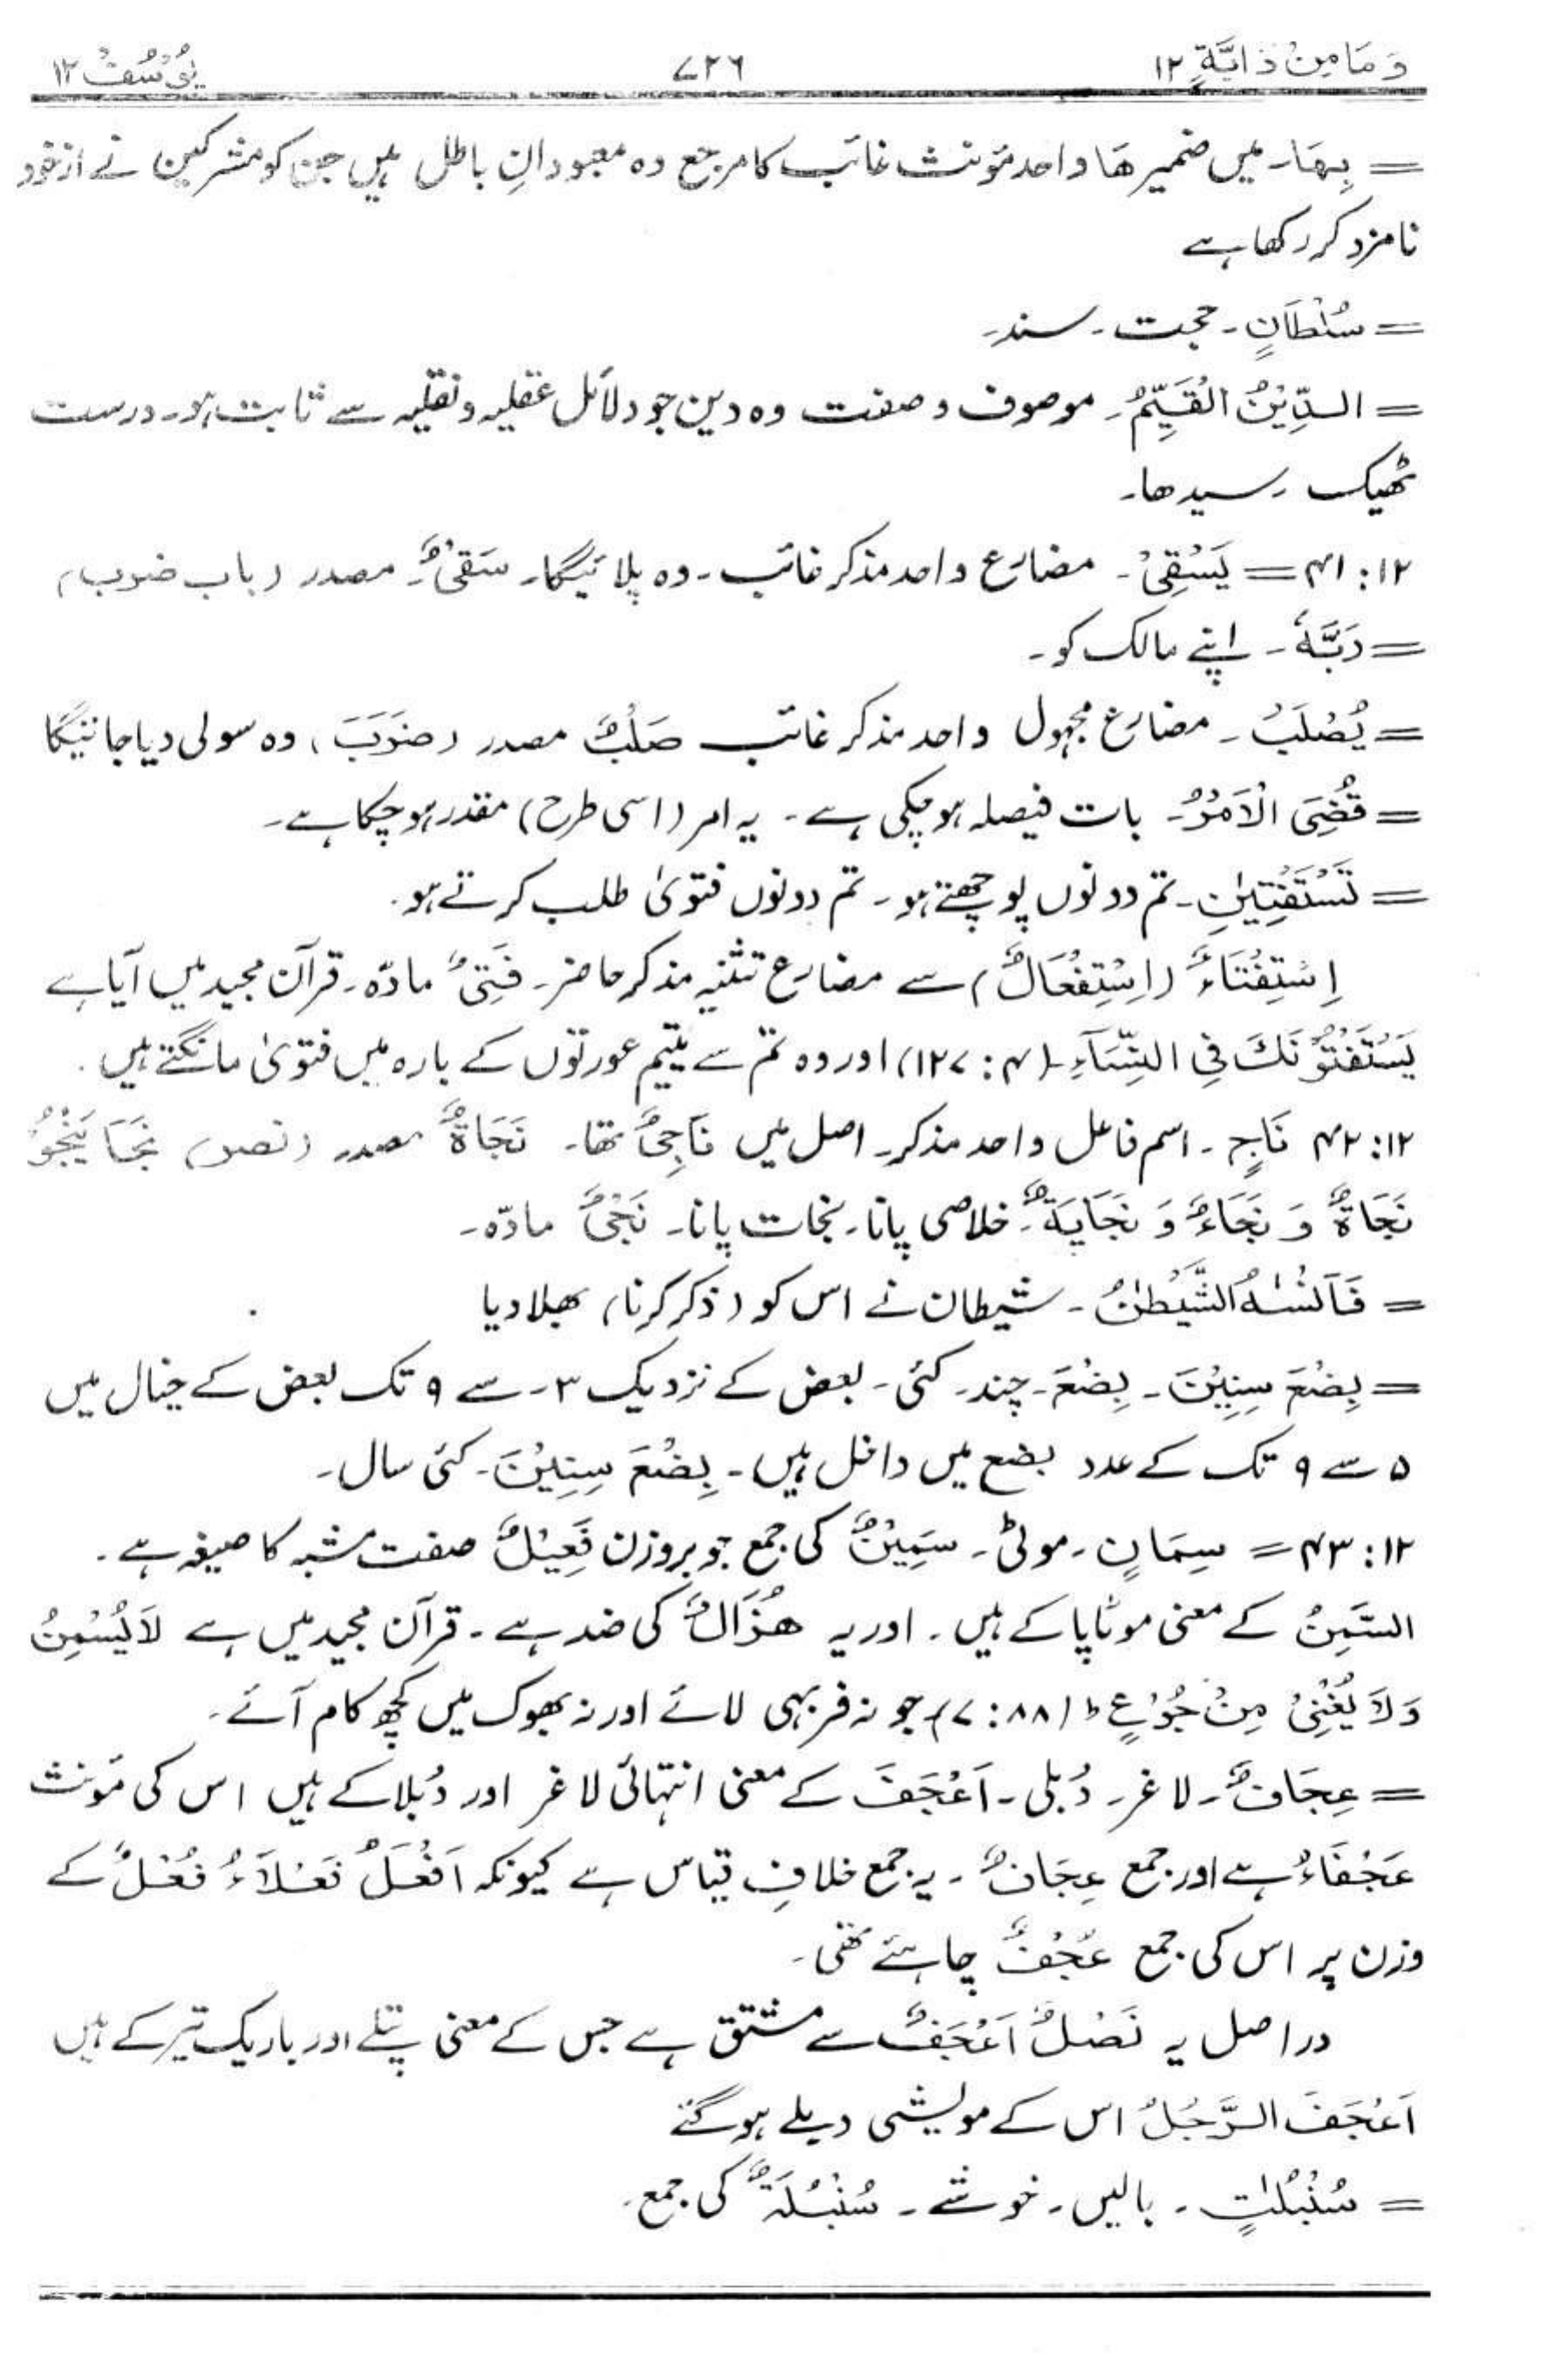 وَمَا مِنْ دَابَّةٍ ۱۲ ۷۲۶ یُوْسُفْ ۱۲
= بِهَا۔ میں ضمیر ھَا واحد مؤنث غائب کا مرجع وہ معبودانِ باطل ہیں جن کو مشرکین نے از خود
نامزد کر رکھا ہے
= سُلْطَانٍ۔ حجت۔ سند۔
= الدِّیْنُ الْقَیِّمُ۔ موصوف و صفت وہ دین جو دلائل عقلیہ و نقلیہ سے ثابت ہو۔ درست
ٹھیک۔ سیدھا۔
۱۲: ۴۱ = یَسْقِیْ۔ مضارع واحد مذکر غائب۔ وہ پلائیگا۔ سَقْیٌ۔ مصدر (باب ضرب)
= رَبَّهٗ۔ اپنے مالک کو۔
= یُصْلَبُ۔ مضارع مجہول واحد مذکر غائب صَلْبٌ مصدر (ضَرَبَ) وہ سولی دیا جائیگا
= قُضِیَ الْاَمْرُ۔ بات فیصلہ ہو چکی ہے۔ یہ امر (اسی طرح) مقدر ہو چکا ہے۔
= تَسْتَفْتِیٰنِ۔ تم دونوں پوچھتے ہو۔ تم دونوں فتویٰ طلب کرتے ہو۔
اِسْتِفْتَاءٌ (اِسْتِفْعَالٌ) سے مضارع تثنیہ مذکر حاضر۔ فَتِیٌ مادّہ۔ قرآن مجید میں آیا ہے
یَسْتَفْتُوْنَكَ فِی النِّسَآءِ۔ (۴: ۱۲۷) اور وہ تم سے یتیم عورتوں کے بارہ میں فتویٰ مانگتے ہیں۔
۱۲: ۴۲ نَاجٍ۔ اسم فاعل واحد مذکر۔ اصل میں نَاجِیٌ تھا۔ نَجَاةٌ مصدر (نصر) نَجَا یَنْجُوْ
نَجَاةٌ وَ نَجَاءٌ وَ نَجَایَةٌ۔ خلاصی پانا۔ نجات پانا۔ نَجْیٌ مادّہ۔
= فَاَنْسٰىهُ الشَّیْطٰنُ۔ شیطان نے اس کو (ذکر کرنا) بھلا دیا
= بِضْعَ سِنِیْنَ۔ بِضْعَ۔ چند۔ کئی۔ بعض کے نزدیک ۳۔ سے ۹ تک بعض کے خیال میں
۵ سے ۹ تک کے عدد بضع میں داخل ہیں۔ بِضْعَ سِنِیْنَ۔ کئی سال۔
۱۲: ۴۳ = سِمَانٍ۔ موٹی۔ سَمِیْنٌ کی جمع جو بروزن فَعِیْلٌ صفت مشبہ کا صیغہ ہے۔
السَّمِنُ کے معنی موٹاپا کے ہیں۔ اور یہ هُزَالٌ کی ضد ہے۔ قرآن مجید میں ہے لَا یُسْمِنُ
وَلَا یُغْنِیْ مِنْ جُوْعٍ ط (۸۸: ۷) جو نہ فربہی لائے اور نہ بھوک میں کچھ کام آئے۔
= عِجَافٌ۔ لاغر۔ دُبلی۔ اَعْجَفَ کے معنی انتہائی لاغر اور دُبلا کے ہیں اس کی مؤنث
عَجْفَاءُ ہے اور جمع عِجَافٌ۔ یہ جمع خلافِ قیاس ہے کیونکہ اَفْعَلُ فَعْلَاءُ فُعْلٌ کے
وزن پر اس کی جمع عُجْفٌ چاہیئے تھی۔
دراصل یہ نَصْلٌ اَعْجَفٌ سے مشتق ہے جس کے معنی پتلے اور باریک تیر کے ہیں
اَعْجَفَ الرَّجُلُ اس کے مویشی دبلے ہو گئے
= سُنْبُلٰتٍ۔ بالیں۔ خوشے۔ سُنْبُلَةٌ کی جمع۔